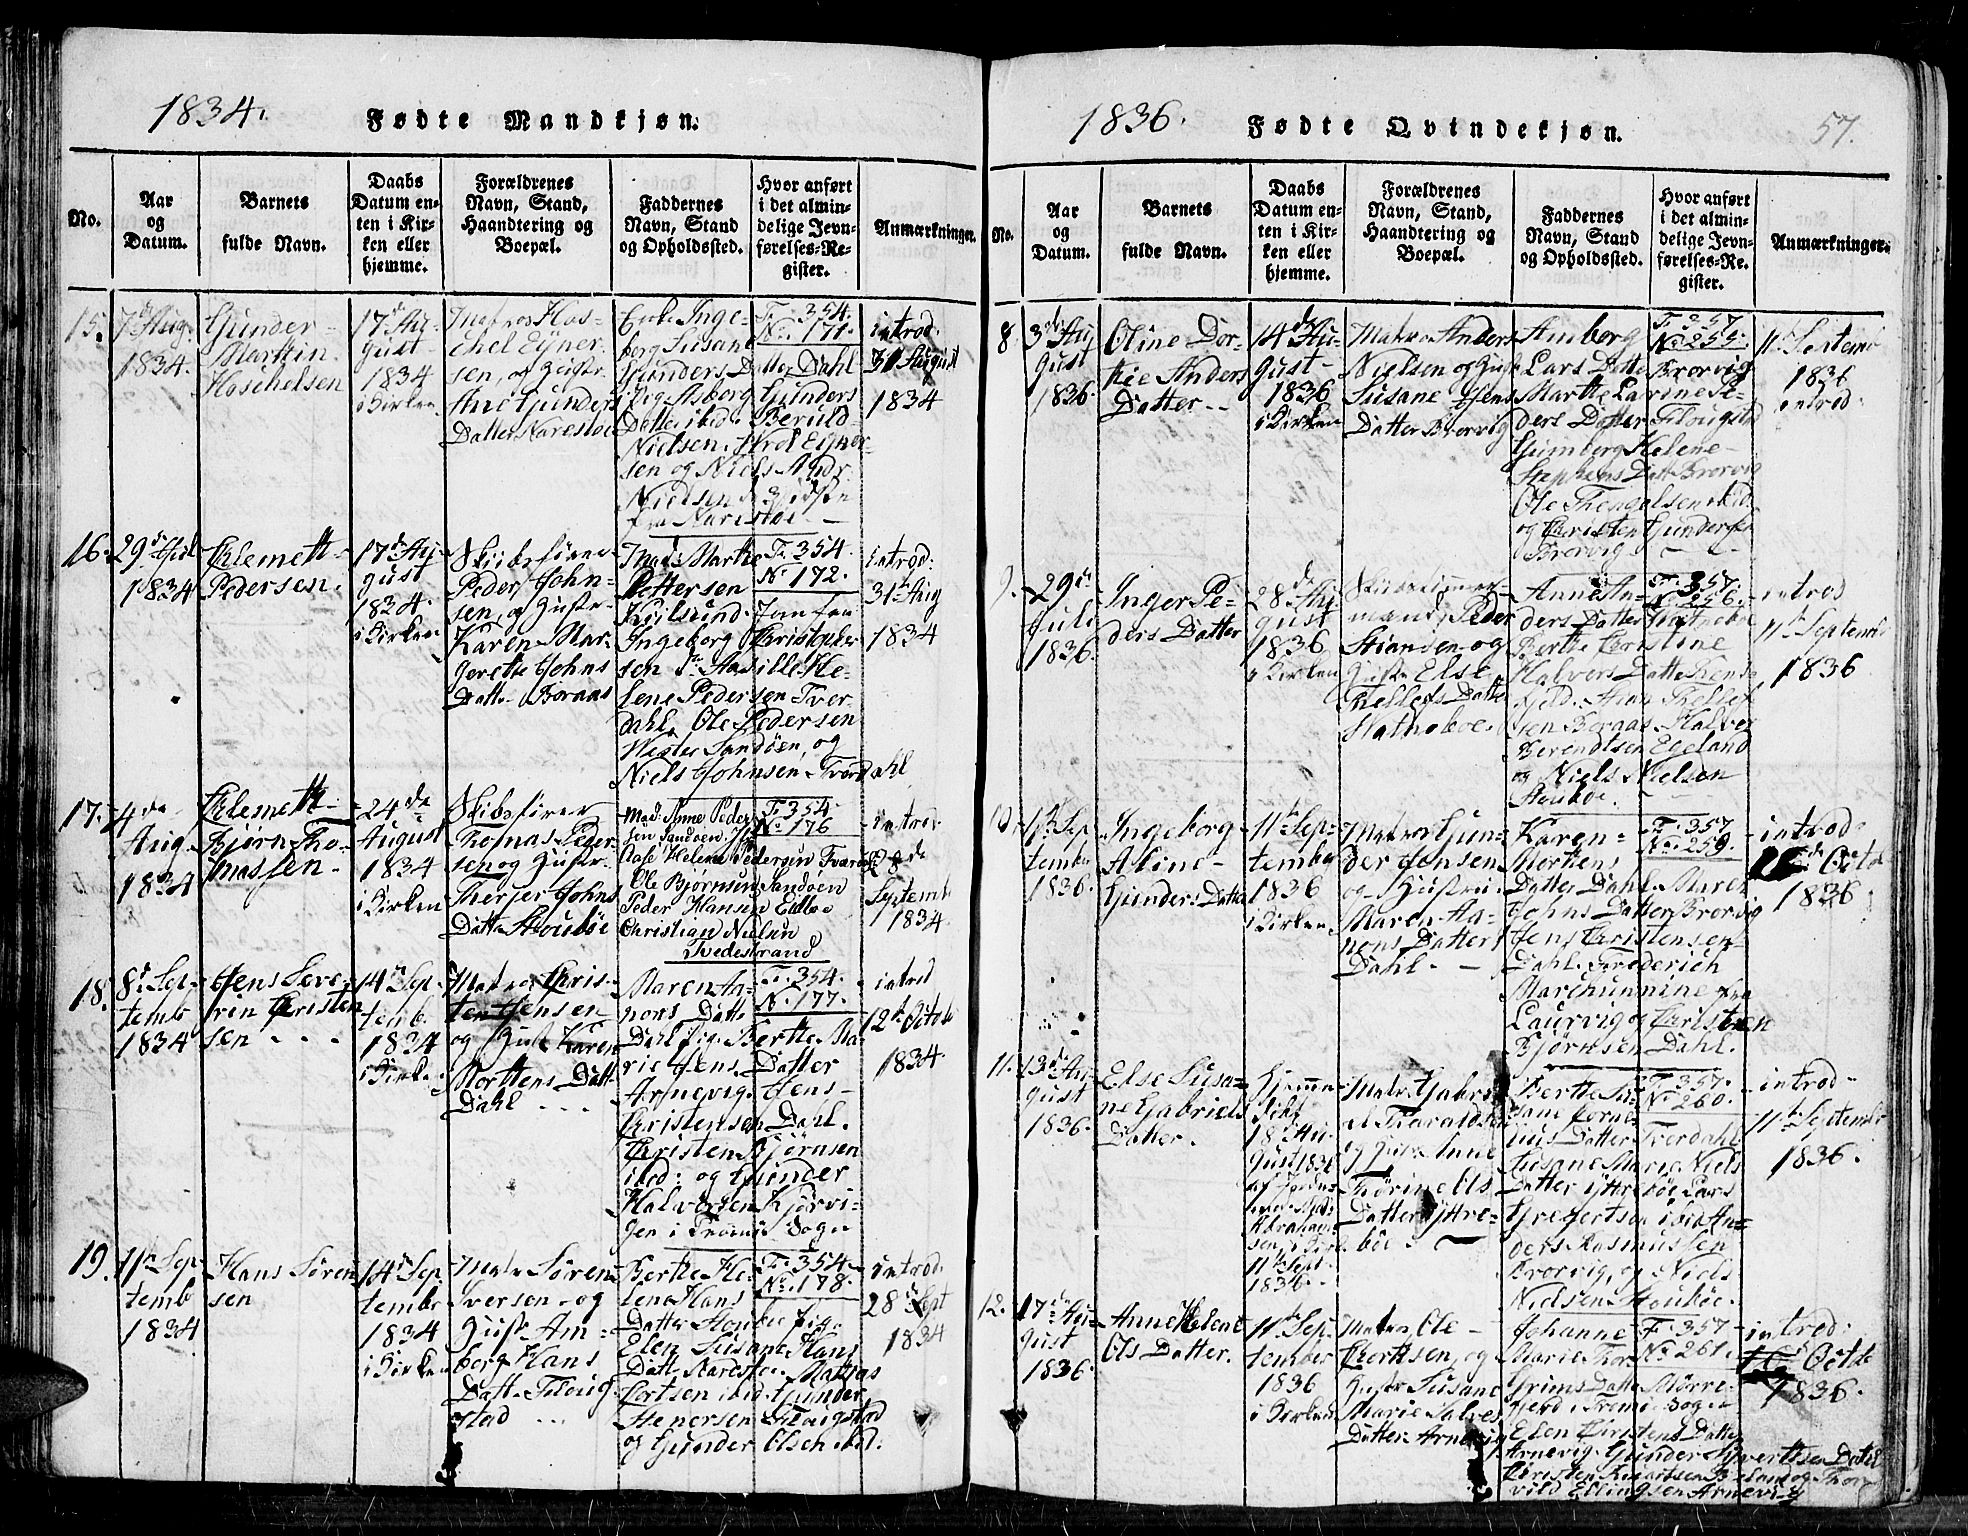 1834.
Fødte Mandkjøn.
No.
Aar
og
Datum.
Barnets
fulde Navn.
Daabs
Datum en-
ten i Kir-
ken eller
hjemme.
Forældrenes
Navn, Stand,
Haandtering og
Boepæl.
Faddernes
Navn, Stand
og Opholdssted.
Hvor anført
i det almin-
delige Jevn-
førelses-Re-
gister.
Anmærkninger.
15.
7de Aug.
1834.
Gunder
17d Au-
gust
1834
i Kirken
sen, og Hustr.
Datter Narestøe
F. 354.
No. 171.
introd.
31 August
1834
16.
1834
Clemett
Pedersen.
17d Au-
gust
1834.
i Kirken
Peder John-
sen, og Hustr.
Karen Mar-
grethe Johns
Datter Boraas
Mad: Marthe
Pettersen
Kiilsund.
Ingeborg Christopher
lene Pedersen Tver
dahl, Ole Pedersen
Wester Sandøen, og
Niels Johnsen Tverdahl
F. 354.
No. 172.
introd:
31te Aug
1834
17.
4de
Aug.
1834
Clemett
Bjørn Tho-
massen
24de
August
1834
i Kirken
Skibsfører
Thomas Peder
sen og Hustr.
Terjer Johns
Datter Stoubøe
Mad: Anne Peder
sen Sandøen, Jfr
Aase Helene Pedersen Tverdal
Ole Bjørnsen Sandøen
Peder Hansen Eidboe
Christian Nielsen
Tvedestrand
F. 354.
No. 176
introd
28de
Septemb
1834.
18.
8d Sep-
temb
1834
Jens Seve-
rin Christen
sen
14d Sep-
temb.
1834
i Kirken
Matros Chris-
ten Jensen
og Hustr. Karen
Mortens Datt
Dahl
Maren Aa-
nons Datte
Dahl Pig. Berthe Ma
rie Jens Datter
Arnevig. Jens
Christensen Dahl.
Christen Bjørnsen
ibid: og Gunder
Halversen Kjørvi-
gen i Tromø Sogn
F. 354.
No. 177.
introd
12te Octob
1834.
19.
11te Sep
temb
1834
Hans Søren
sen
14d Sep.
tembr
1834
i Kirken
Matr Søren
Iversen og
Hustr. Am-
borg Hans
Datt. Flovig
stad
Berthe He-
lene Hans
Datter Stoubøe pig.
Elen Susane Hans
Datt. Narestøe Mathias
Cortsen ibid. Gunder
Stenersen Flougstad
og Gunder Olsen ibid.
F. 354
No. 178.
introd.
28d Sept
1834
1836.
Fødte Qvindekjøn.
57.
No.
Aar
og
Datum.
Barnets
fulde Navn.
Daabs
Datum en-
ten i Kir-
ken eller
hjemme.
Forældrenes
Navn, Stand,
Haandtering og
Boepæl.
Faddernes
Navn, Stand
og Opholdssted.
Hvor anført
i det almin-
delige Jevn-
førelses-Re-
gister.
Anmærkninger.
8.
3de Au
gust
1836.
Oline Dor-
thie Anders
Datter
14de Au-
gust
1836
i Kirken
Matro Anders
Nielsen og Hust
Susane Jens
Datter Brorvig
Amborg
Lars Datte Brorvig
Marthe Larine Pe-
ders Datter Flougstad
Gumborg Helene
Stephens Datt Brorvig
og Christen Gundersen
Brorvig
F. 357.
No. 255.
11te Septemb
1836
introd.
9.
29de
Juli
1836.
Inger Pe-
ders Datter
28de Au
gust
1836
i Kirken
mand, Peder
Stiansen og
Hustr Else
Thellefs Datte
Anne An-
ders Datter
Berthe Christine
Halvors Datte
sen Boraas Halver
Berentsen Egeland
og Niels Nielsen
Stoubøe.
F. 357.
No. 256.
introd
11te Septemb
1836
10.
1te Sep
tember
1836.
Ingeborg
Aline
Gunders Datter
11te Sep-
tember
1836
i Kirken.
Matro Gun-
der Jensen
og Hustru
Maren Aa-
nons Datter
Dahl.
Karen
Mortens
Datter Dahl. Maren
Johns Datter Brorvig
Jens Christensen
Dahl. Frederich
Laurvig og Christen
Bjørnsen Dahl.
F. 357
No. 259.
introd:
Octob
1836
11.
13de Au
gust
1836.
Else Susa-
ne Gabriels
Datter.
Hjemme
døbt
18d Au-
gust 1836
Abraham
sen, i Kirk
11te Sept.
1836.
Matr. Gabri
el Taraldsen
og Hustr. Anne
Datter Yttre-
bøe.
Berthe Su-
sane Corne
lius Datter Tverdahl
Susane Marie Niels
Datter Yttrebøe Lars
Gregertsen ibid An-
ders Rasmussen
Brorvig, og Niels
Nielsen Stoubøe.
F. 357.
No 260.
introd
11te September
1836.
12.
17de Au-
gust
1836.
Anne Helene
Ols Datter.
11te Sep-
tember
1836
i Kirken
Matros Ole
Hustr Susane
Marie Salves
Datter Arnevig
Johanne
Marie Thor
Grims Datte Mørre-
gierd i Tromø Sogn
Elen Christens Datter
Arnevig. Gunder Syvertsen Dahl
vild Ellingsen Arnevig
F. 357
No 261.
introd:
Octob
1836.